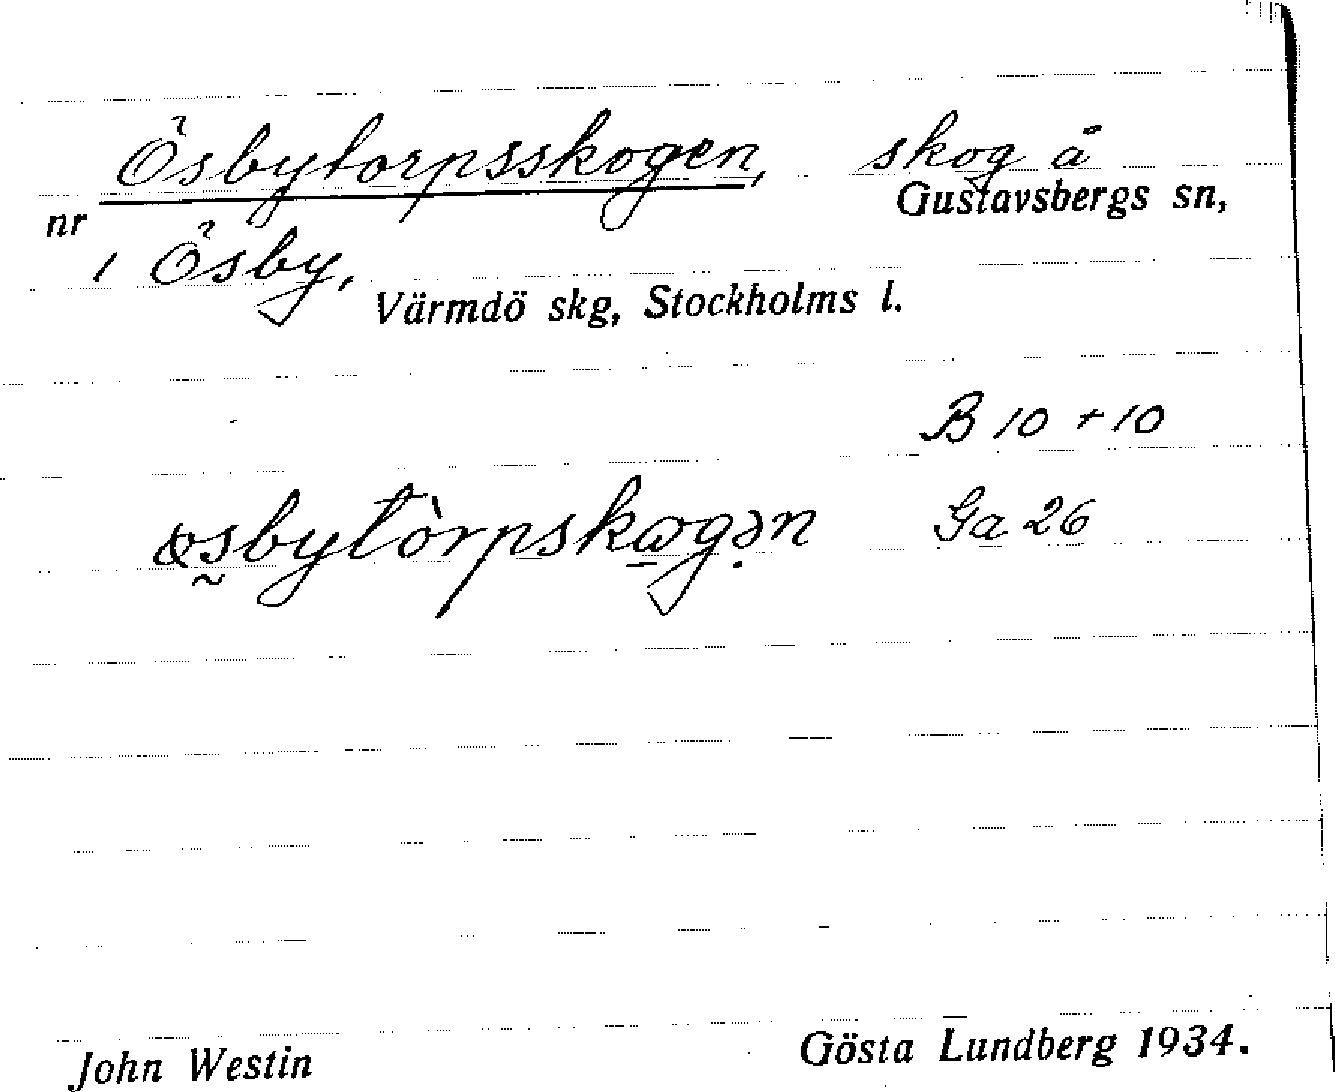 Ösbytorpsskogen, skog å
nr Gustavsbergs sn,
1 Ösby,
Värmdö skg, Stockholms l.
B 10 + 10
Ga 26
John Westin Gösta Lundberg 1934.